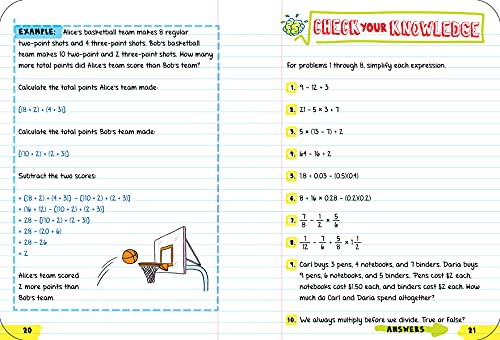 EXAMPLE: Alice's basketball team makes 8 regular
two-point shots and 4 three-point shots. Bob's basketball
team makes 10 two-point and 2 three-point shots. How many
more total points did Alice's team score than Bob's team?
Calculate the total points Alice's team made:
[(8 • 2) + (4 • 3)]
Calculate the total points Bob's team made:
[(10 • 2) + (2 • 3)]
Subtract the two scores:
= [(8 • 2) + (4 • 3)] – [(10 • 2) + (2 • 3)]
= (16 + 12) – [(10 • 2) + (2 • 3)]
= 28 – [(10 • 2) + (2 • 3)]
= 28 – (20 + 6)
= 28 – 26
= 2
Alice's team scored
2 more points than
Bob's team.
20
CHECK YOUR KNOWLEDGE
For problems 1 through 8, simplify each expression.
1. 9 – 12 ÷ 3
2. 21 – 5 × 3 + 7
3. 5 × (13 – 7) ÷ 2
4. 64 – 16 ÷ 2
5. 1.8 ÷ 0.03 – (0.5)(0.4)
6. 8 ÷ 16 × 0.28 – (0.2)(0.2)
7. 7/8 – 1/2 × 5/6
8. 1/12 – 7/6 ÷ 5/8 × 1 1/2
9. Carl buys 3 pens, 4 notebooks, and 7 binders. Daria buys
9 pens, 6 notebooks, and 5 binders. Pens cost $2 each,
notebooks cost $1.50 each, and binders cost $2 each. How
much do Carl and Daria spend altogether?
10. We always multiply before we divide. True or False?
ANSWERS
21